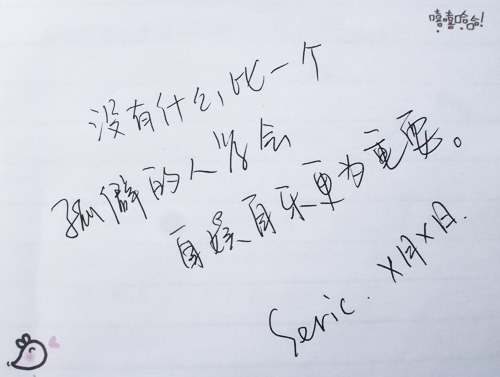 嘻嘻哈哈!
没有什么比一个
孤僻的人学会
自娱自乐更为重要。
Seric. X月X日.